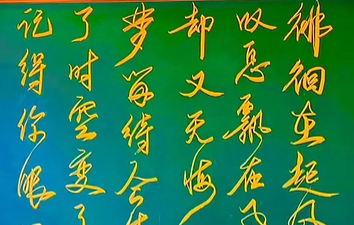 徘徊在起风
叹息飘在
却又无悔
梦等待今
了时空变了
记得你眼